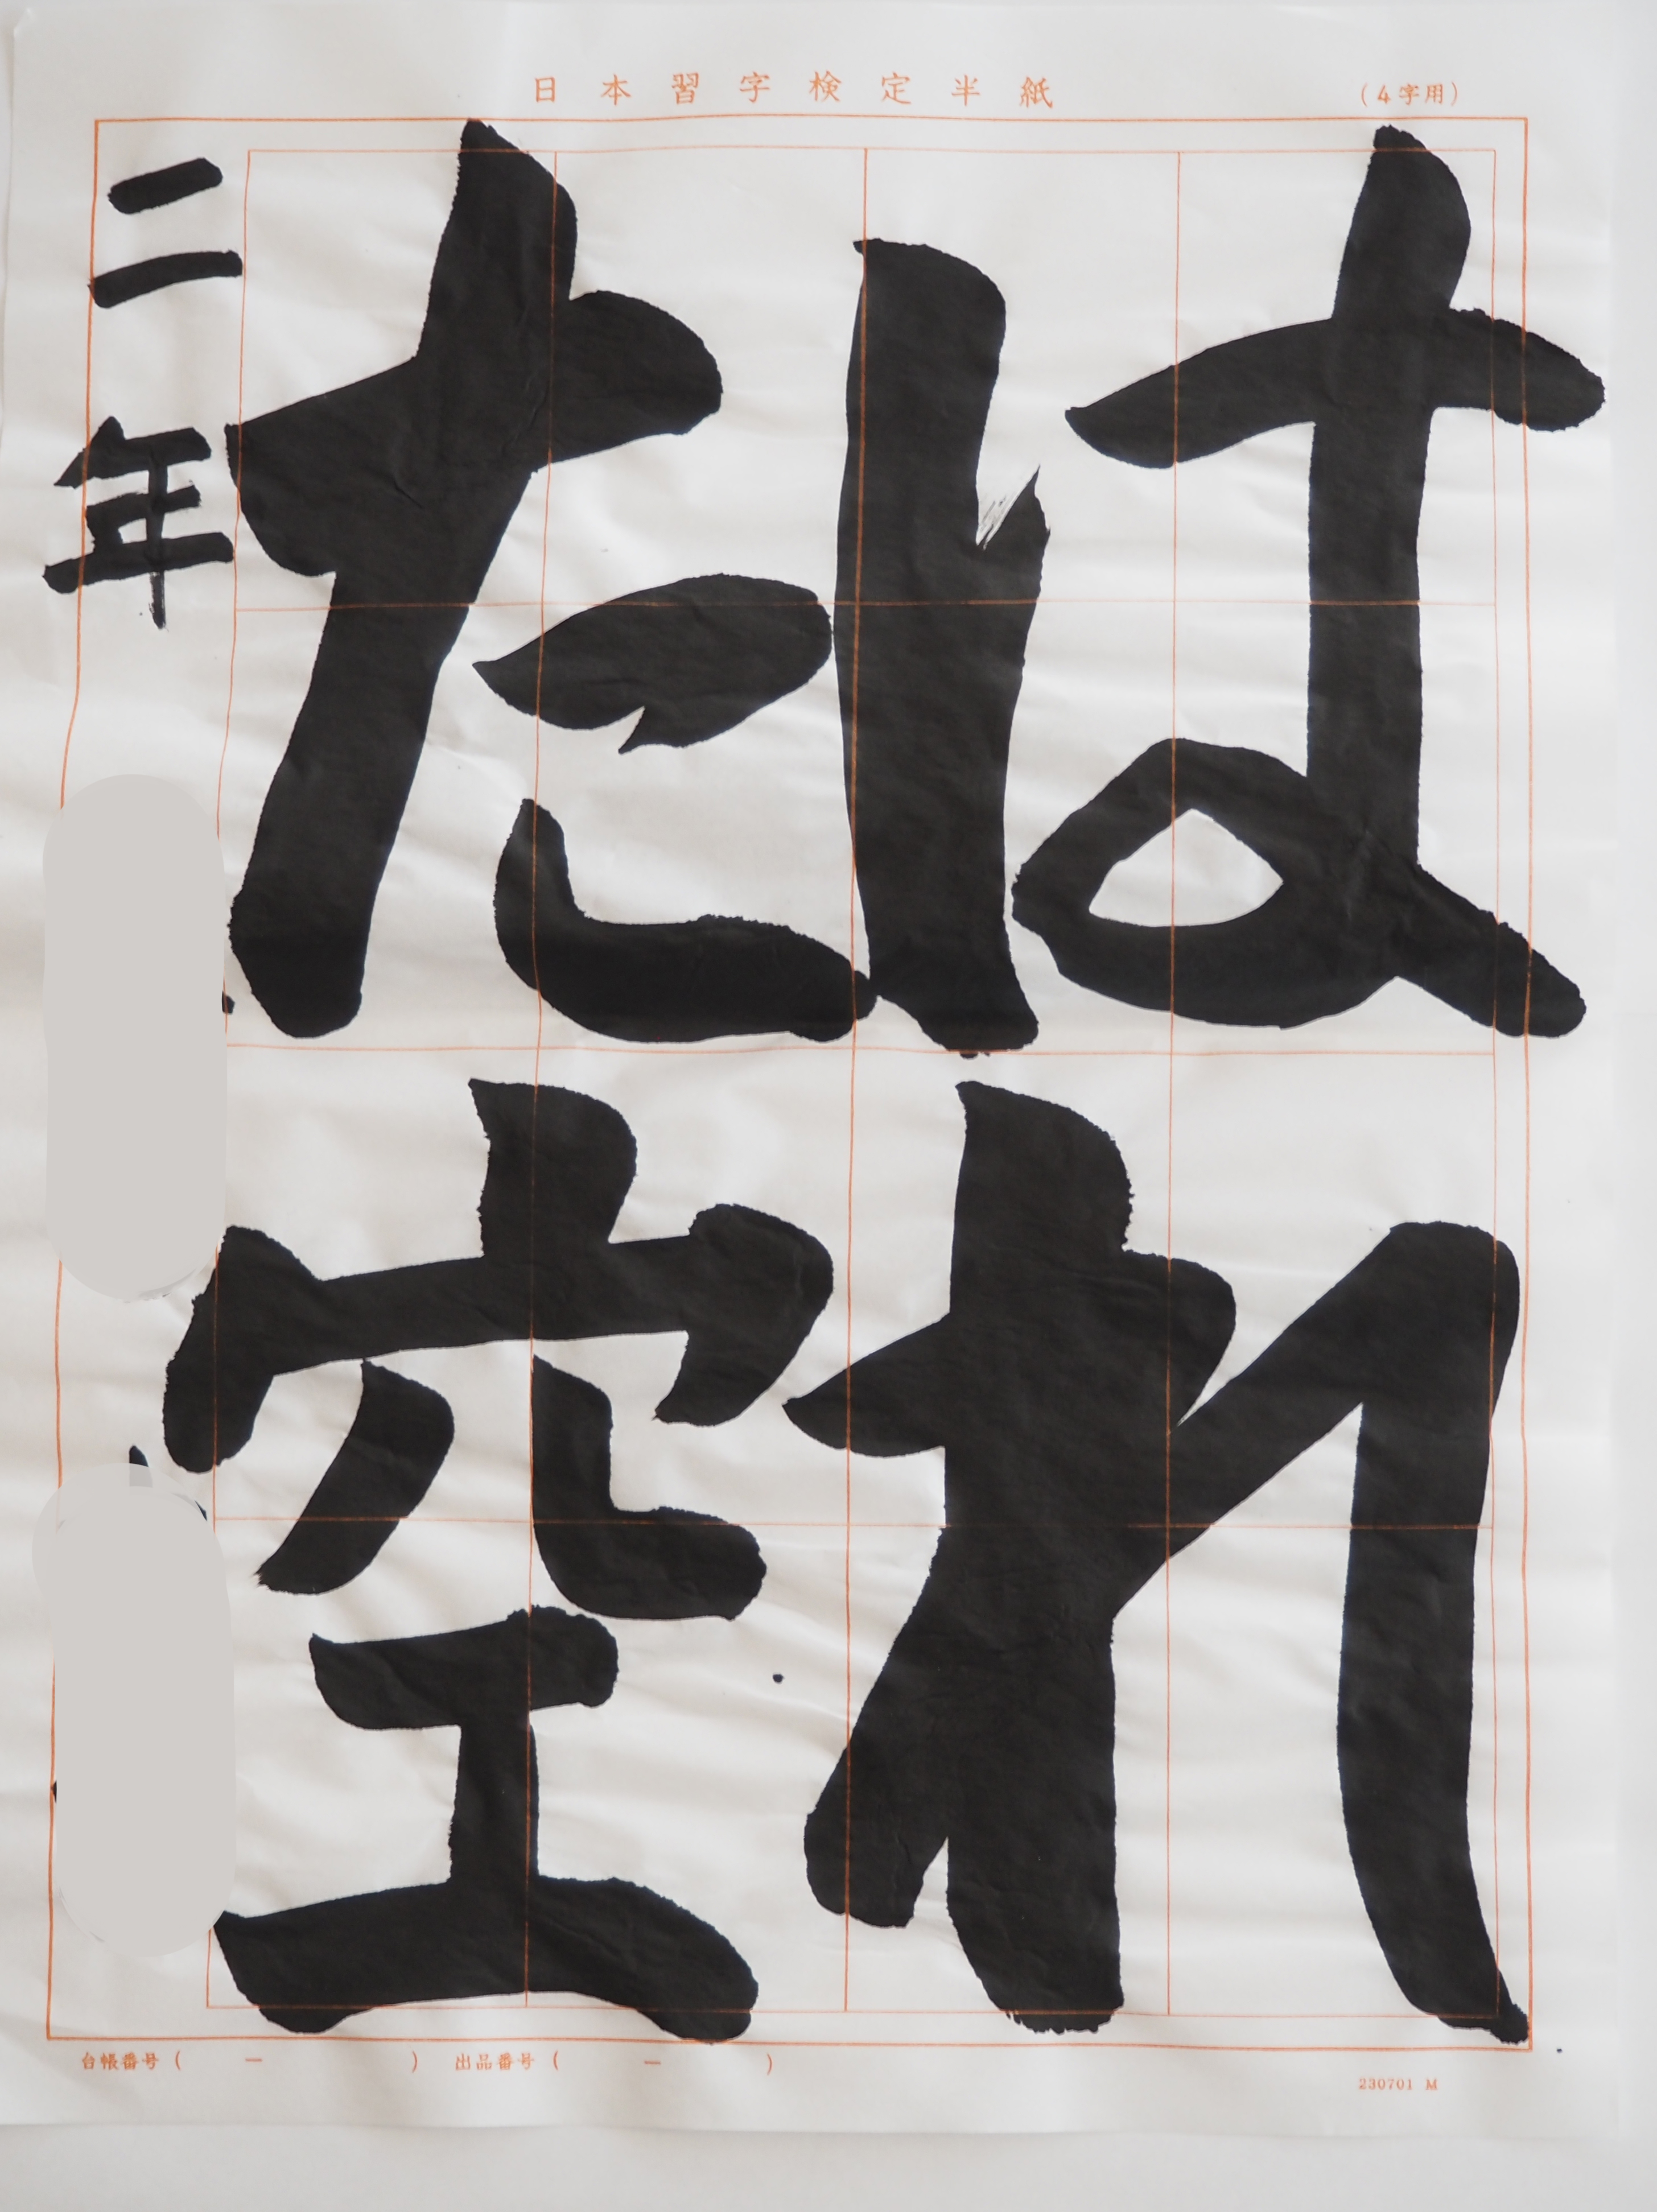 日本習字検定半紙
(4字用)
はれ
た空
二年
台帳番号( ー ) 出品番号( ー )
230701 M